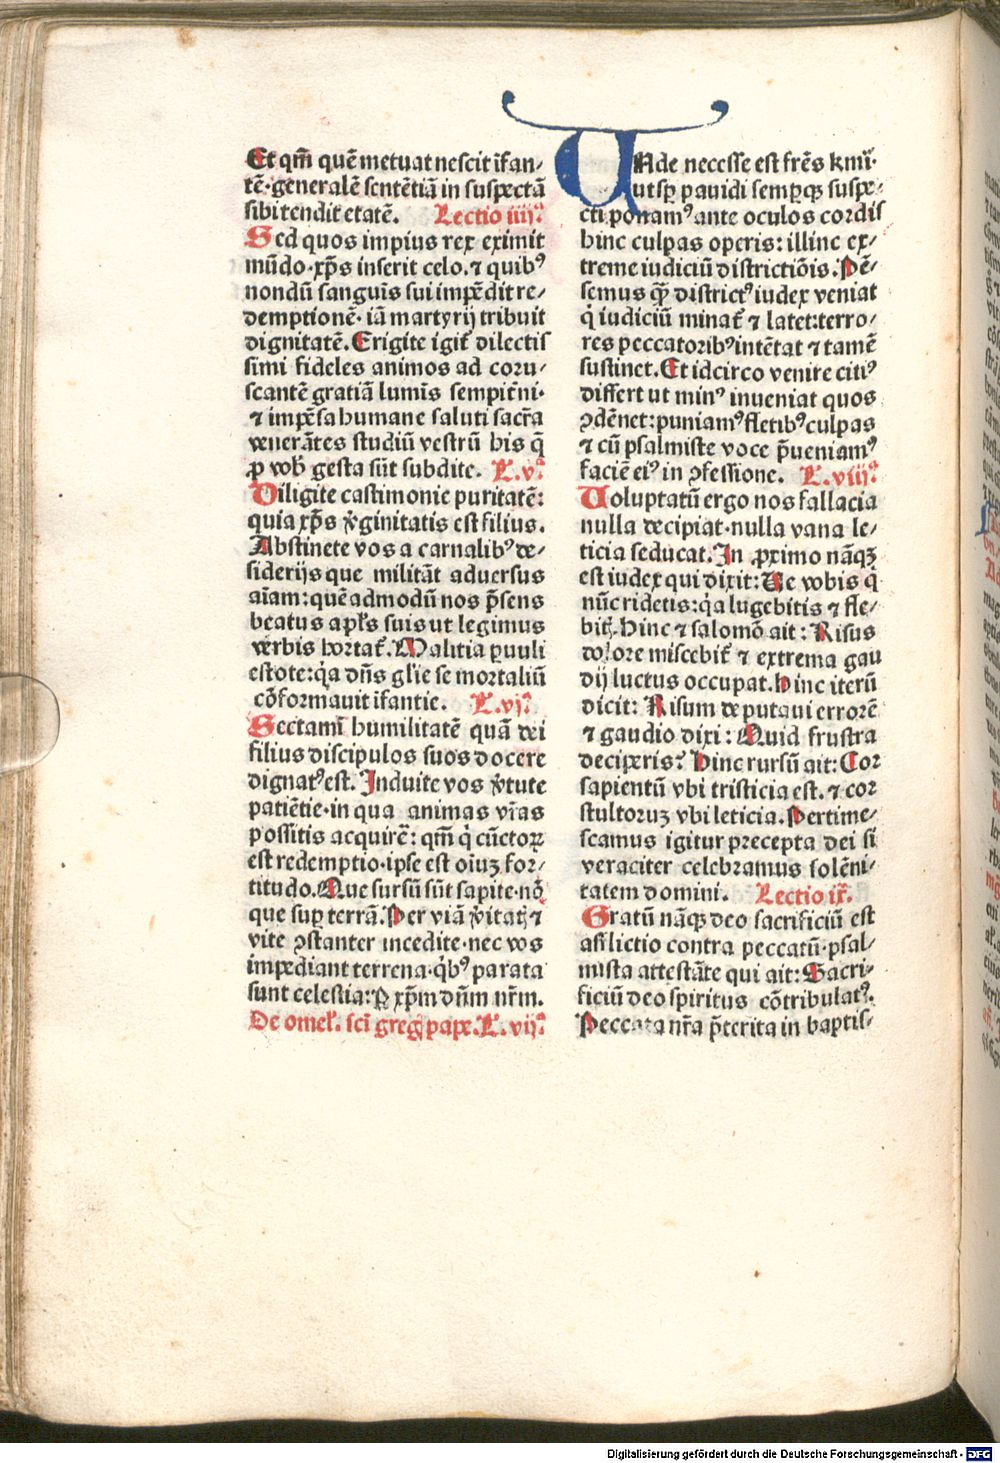 Et qm̃ quē metuat nescit ĩfan-
tē·generalē sentētiā in suspectā
sibi tendit etatē. Lectio iiij.ª
Sed quos impius rex eximit
mũdo·xp̃s inserit celo.⁊ quibꝰ
nondũ sanguĩs sui impēdit re-
demptionē·iã martyrij tribuit
dignitatē.Erigite igit̃ dilectis
simi fideles animos ad coru-
scantē gratiã lumĩs sempit̃ni·
⁊ imp̃ssa humane saluti sac̃ra
venerãtes studiũ vestrũ his q̃
ꝓ vob̃ gesta sũt subdite. L.v.ª
Diligite castimonie puritatē:
quia xp̃s v̓ginitatis est filius.
Abstinete vos a carnalibꝰ de-
siderijs que militãt aduersus
aĩam:quēadmodũ nos p̃sens
beatus apl̃s suis ut legimus
verbis hortat̃.Malitia paruuli
estote:q̓a dñs gl̃ie se mortaliũ
cõformauit ĩfantie. L.vj.ª
Sectamĩ humilitatē quã dei
filius discipulos suos docere
dignatꝰ est.Induite vos v̓tute
patiētie·in qua animas vr̃as
possitis acquirē: qm̃ q̓ cũctoꝝ
est redemptio·ipse est oĩuꝫ for-
titudo.Que sursũ sũt sapite·nõ
que suꝑ terrã.Per viã v̓itatꝭ ⁊
vite ꝯstanter incedite·nec vos
impediant terrena·q̓bꝰ parata
sunt celestia:ꝑ xp̃m dñm nr̃m.
De omel̃. sc̃i greg̃ pape.L.vij.ª
Unde necesse est fr̃es kmĩ·
ut sꝑ pauidi semꝑqꝫ suspe-
cti ponamꝰ ante oculos cordis
hinc culpas operis: illinc ex-
treme iudiciũ districtiõis.Pē-
semus q̃ districtꝰ iudex veniat
q̓ iudiciũ minat̃ ⁊ latet:terro-
res peccatoribꝰ intētat ⁊ tamē
sustinet.Et idcirco venire citiꝰ
differt ut minꝰ inueniat quos
ꝯdēnet:puniamꝰ fletibꝰ culpas
⁊ cũ psalmiste voce p̃ueniamꝰ
faciē eiꝰ in ꝯfessione. L.viij.ª
Uoluptatũ ergo nos fallacia
nulla decipiat·nulla vana le-
ticia seducat.In ꝓximo nãqꝫ
est iudex qui dixit:Ue vobis q̓
nũc ridetis:q̓a lugebitis ⁊ fle-
bitꝭ.Hinc ⁊ salomõ ait: Risus
dolore miscebit̃ ⁊ extrema gau
dij luctus occupat.Hinc iterũ
dicit: Risum deputaui errorē
⁊ gaudio dixi: Quid frustra
deciperis? Hinc rursũ ait: Cor
sapientũ vbi tristicia est.⁊ cor
stultoruꝫ vbi leticia.Pertime-
scamus igitur precepta dei si
veraciter celebramus solēni-
tatem domini. Lectio ix.
Gratũ nãqꝫ deo sacrificiũ est
afflictio contra peccatũ·psal-
mista attestãte qui ait:Sacri-
ficiũ deo spiritus cõtribulatꝰ.
Peccata nr̃a p̃terita in baptis-
Digitalisierung gefördert durch die Deutsche Forschungsgemeinschaft - DFG